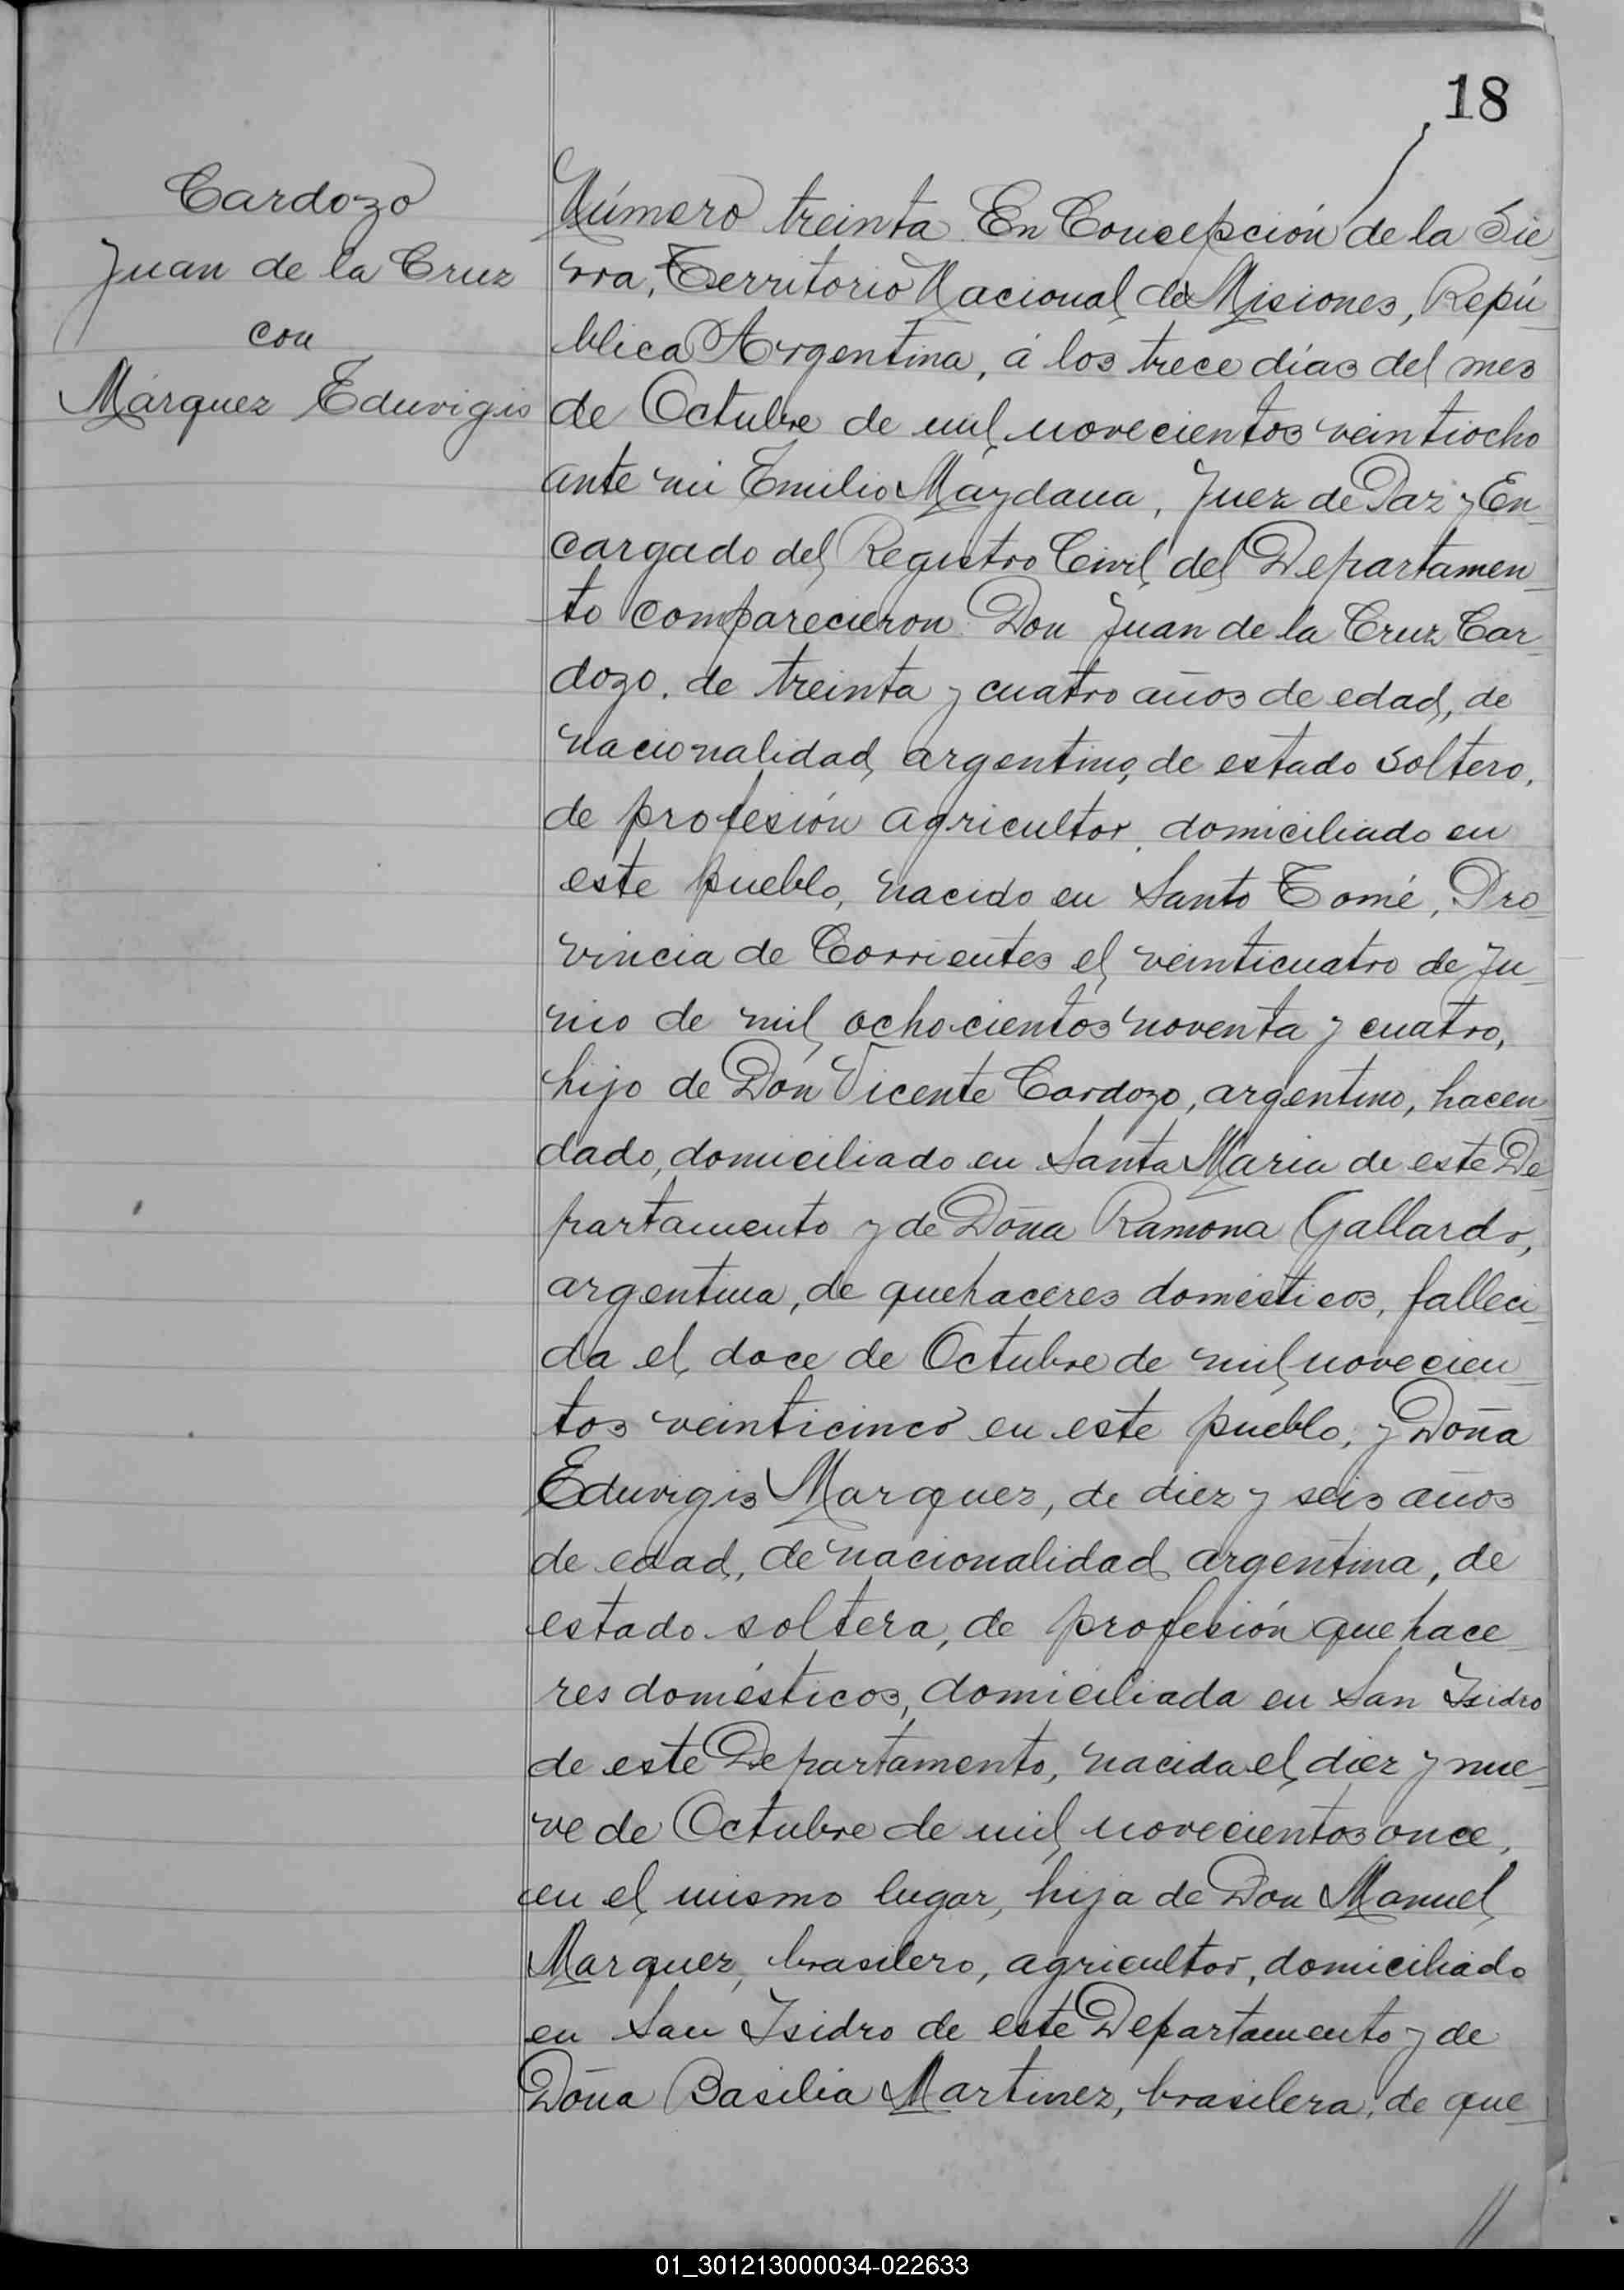 18
Cardozo
Juan de la Cruz
con
Márquez Eduvigis
Número treinta. En Concepción de la Sie-
rra, Territorio Nacional de Misiones, Repú-
blica Argentina, á los trece días del mes
de Octubre de mil novecientos veintiocho
ante mi Emilio Maydana, Juez de Paz y En-
cargado del Registro Civil del Departamen-
to comparecieron: Don Juan de la Cruz Car-
dozo, de treinta y cuatro años de edad, de
nacionalidad argentino, de estado soltero,
de profesión agricultor, domiciliado en
este pueblo, nacido en Santo Tomé, Pro-
vincia de Corrientes el veinticuatro de Ju-
nio de mil ochocientos noventa y cuatro,
hijo de Don Vicente Cardozo, argentino, hacen-
dado, domiciliado en Santa Maria de este De-
partamento y de Doña Ramona Gallardo,
argentina, de quehaceres domésticos, falleci-
da el doce de Octubre de mil novecien-
tos veinticinco en este pueblo, y Doña
Eduvigis Marquez, de diez y seis años
de edad, de nacionalidad argentina, de
estado soltera, de profesión quehace-
res domésticos, domiciliada en San Isidro
de este Departamento, nacida el diez y nue-
ve de Octubre de mil novecientos once,
en el mismo lugar, hija de Don Manuel
Marquez, brasilero, agricultor, domiciliado
en San Isidro de este Departamento y de
Doña Basilia Martinez, brasilera, de que-
//
01_301213000034-022633